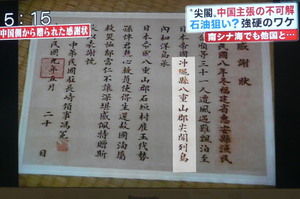 5:15
中国側から贈られた感謝状
"尖閣"中国主張の不可解
石油狙い?強硬のワケ
南シナ海でも他国と…
民國八年冬福建省惠安縣漁民
順等三十一人遭風遇難飄泊至
日本帝國沖繩縣八重山郡尖閣列島
內和洋島承
日本帝國八重山郡石垣村雇玉代勢
孫伴君熱心救護使得生還故國洵屬
救災恤鄰當仁不讓深堪感佩特贈斯
狀以表謝忱
中華民國駐長崎領事馮冕
民國九年五月二十日